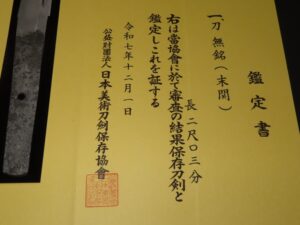 鑑定書
一、刀 無銘(末関)
長 二尺〇三分
右は當協會に於て審査の結果保存刀剣と
鑑定しこれを証する
令和七年十二月一日
公益財団法人日本美術刀剣保存協會